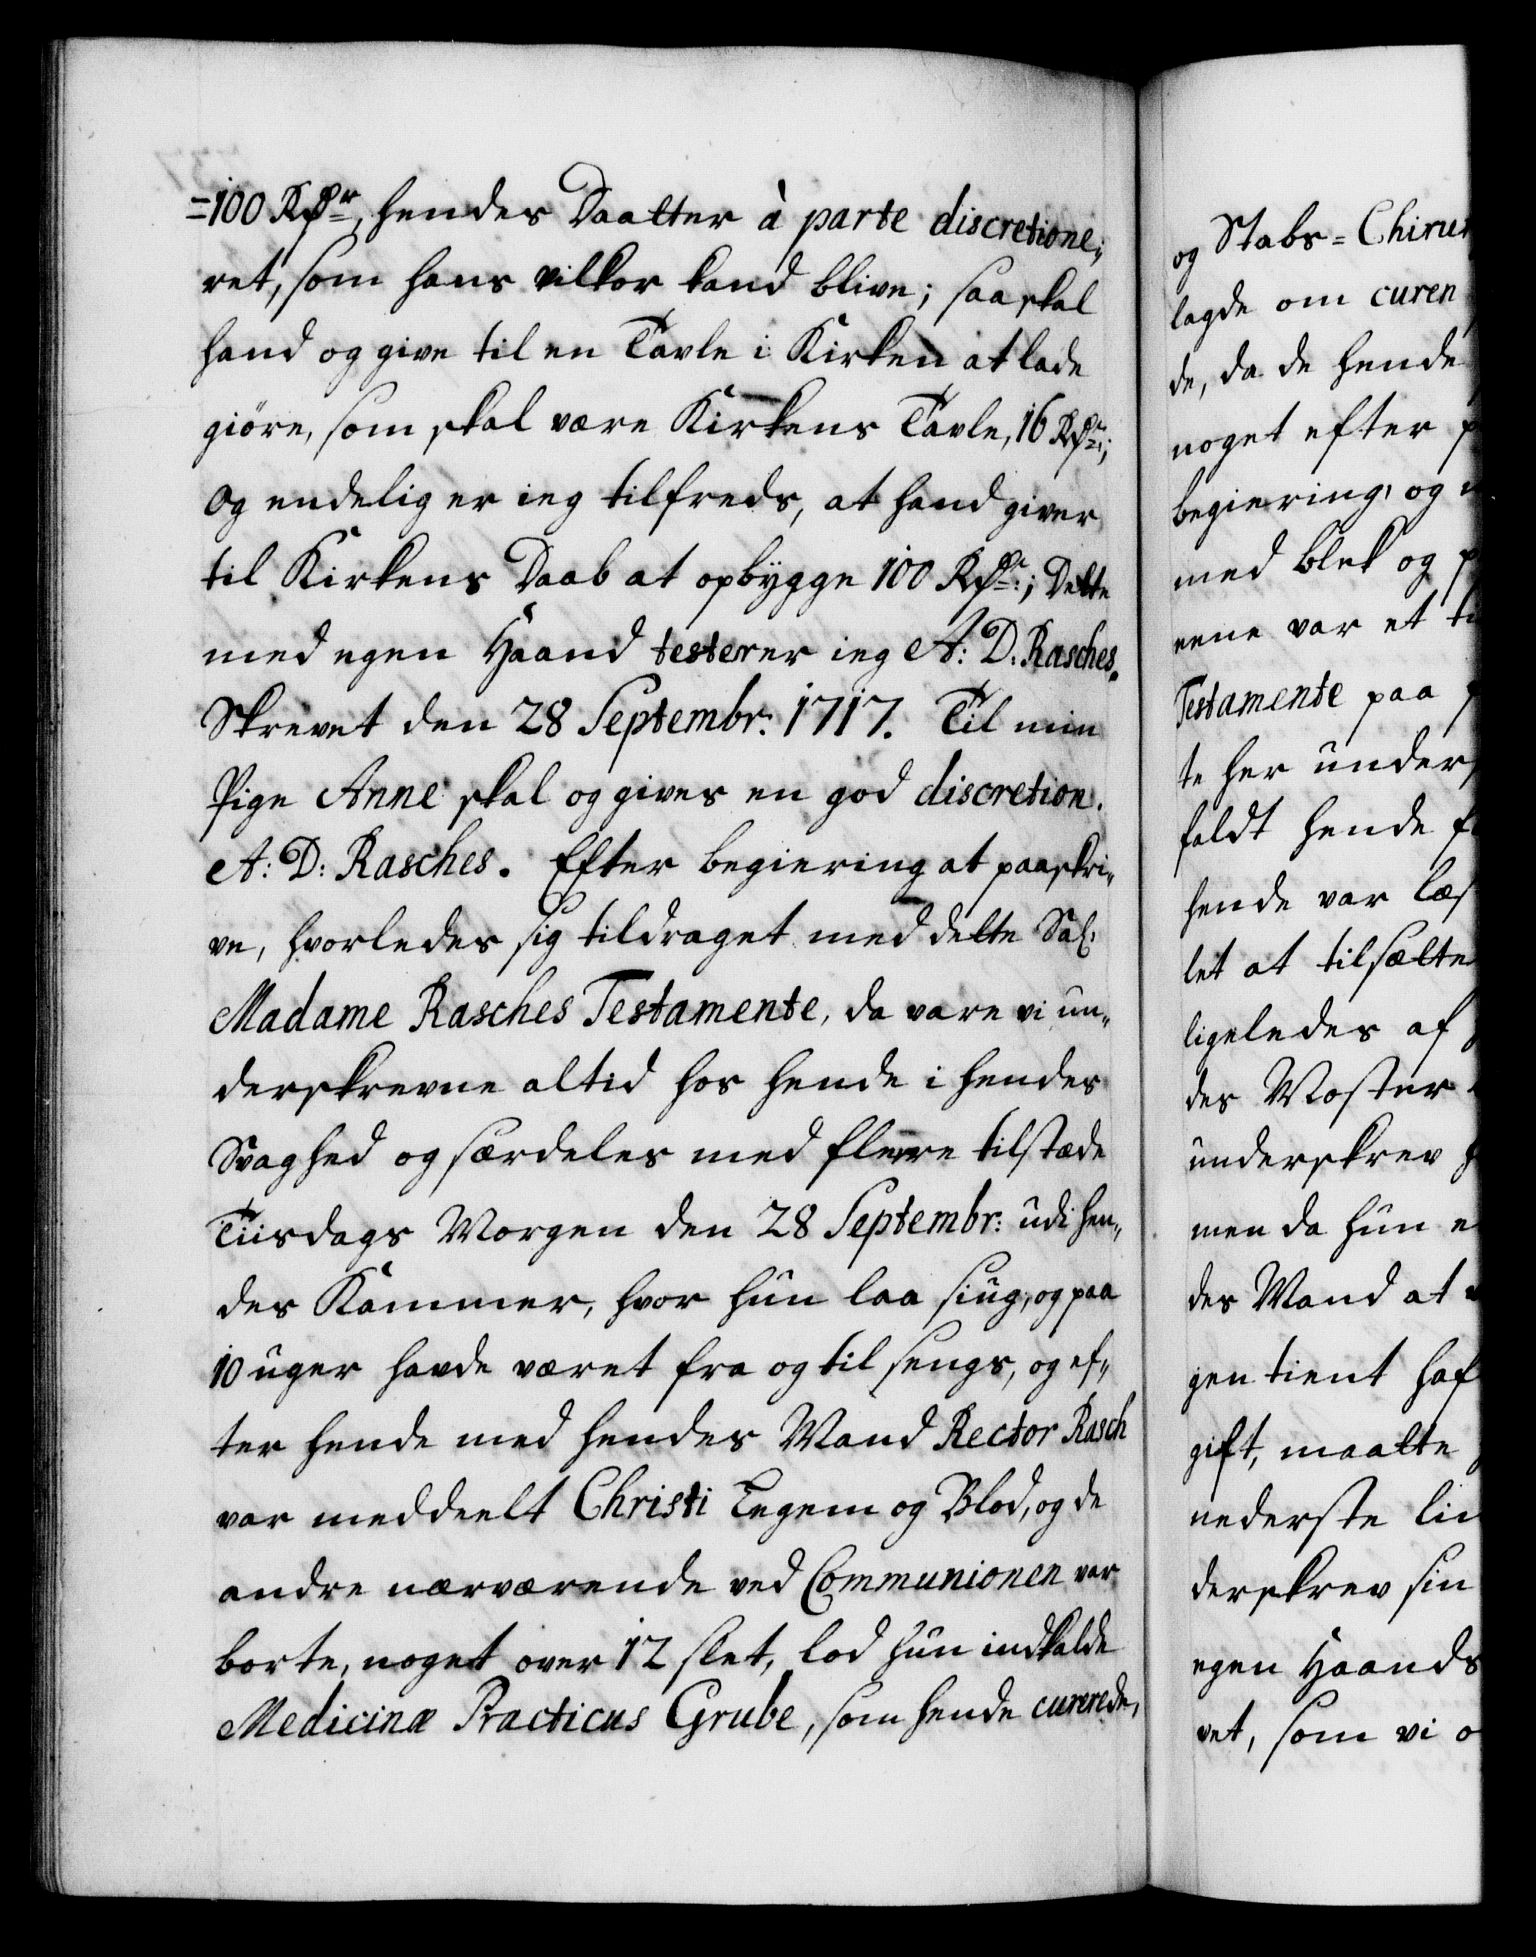 =100 Rdr, hendes Daatter à parte discretione-
ret, som hans vilkor kand blive; saa skal
hand og give til en Tavle i Kirken at lade
giöre, som skal være Kirkens Tavle, 16 Rdr;
og endelig er ieg tilfreds, at hand giver
til Kirkens Daab at opbygge 100 Rdr:; Dette
med egen Haand testerer ieg A: D: Rasches.
Skrevet den 28 Septembr: 1717. Til min
Pige Anne skal og gives en god discretion.
A: D: Rasches. Efter begiering at paaskri-
ve, hvorledes sig tildraget med dette Sal:
Madame Rasches Testamente, da vare vi un-
derskrevne altid hos hende i hendes
Svaghed og særdeles med fleere tilstæde
Tiisdags Morgen den 28 Septembr: udi hen-
des Kammer, hvor hun laa siug, og paa
10 uger havde været fra og til sengs, og ef-
ter hende med hendes Mand Rector Rasch
var meddeelt Christi Legem og Blod, og de
andre nærværende ved Communionen var
borte, noget over 12 slet, lod hun indkalde
Medicinæ Practicus Grube, som hende curerede,
og Stabs=Chirur
lagde om curen
de, da de hende
noget efter
begiering, og
med blek og
eene var et
Testamente paa
te her unders
faldt hende
hende var læs
let at tilsætte
ligeledes af
des Moster
underskrev
men da hun
des Mand at
gen tient haf
gift, maatte
nederste lin
derskrev sin
egen Haands
vet, som vi